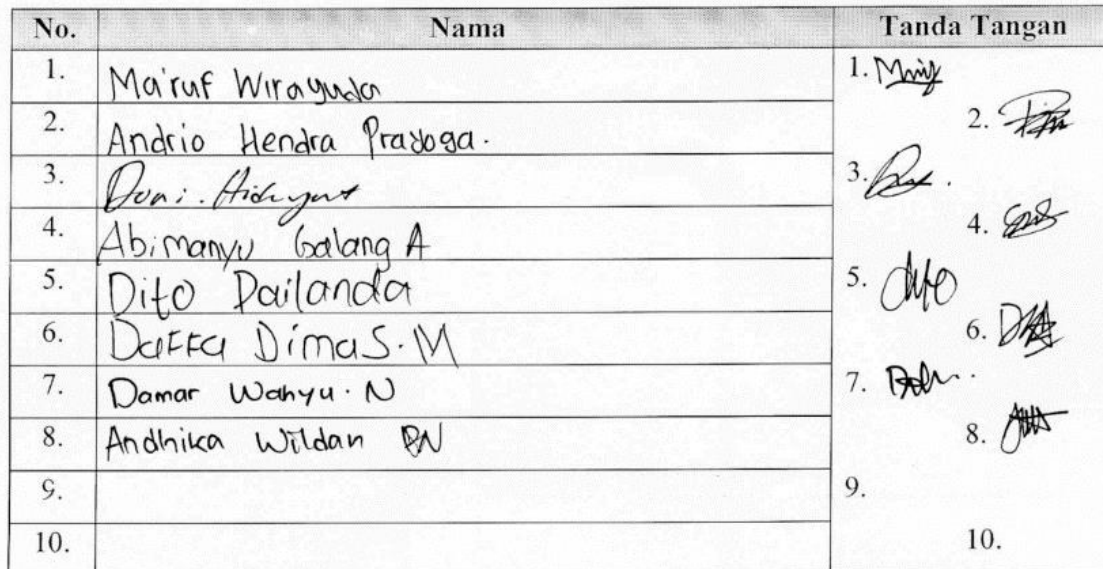 No. Nama Tanda Tangan
1. Ma'ruf Wirayuda 1.
2. Andrio Hendra Prayoga. 2.
3. Doni. Hidayat 3.
4. Abimanyu Galang A 4.
5. Dito Dailanda 5. dito
6. Daffa Dimas. M 6.
7. Damar Wahyu. N 7.
8. Andhika Wildan 8.
9. 9.
10. 10.